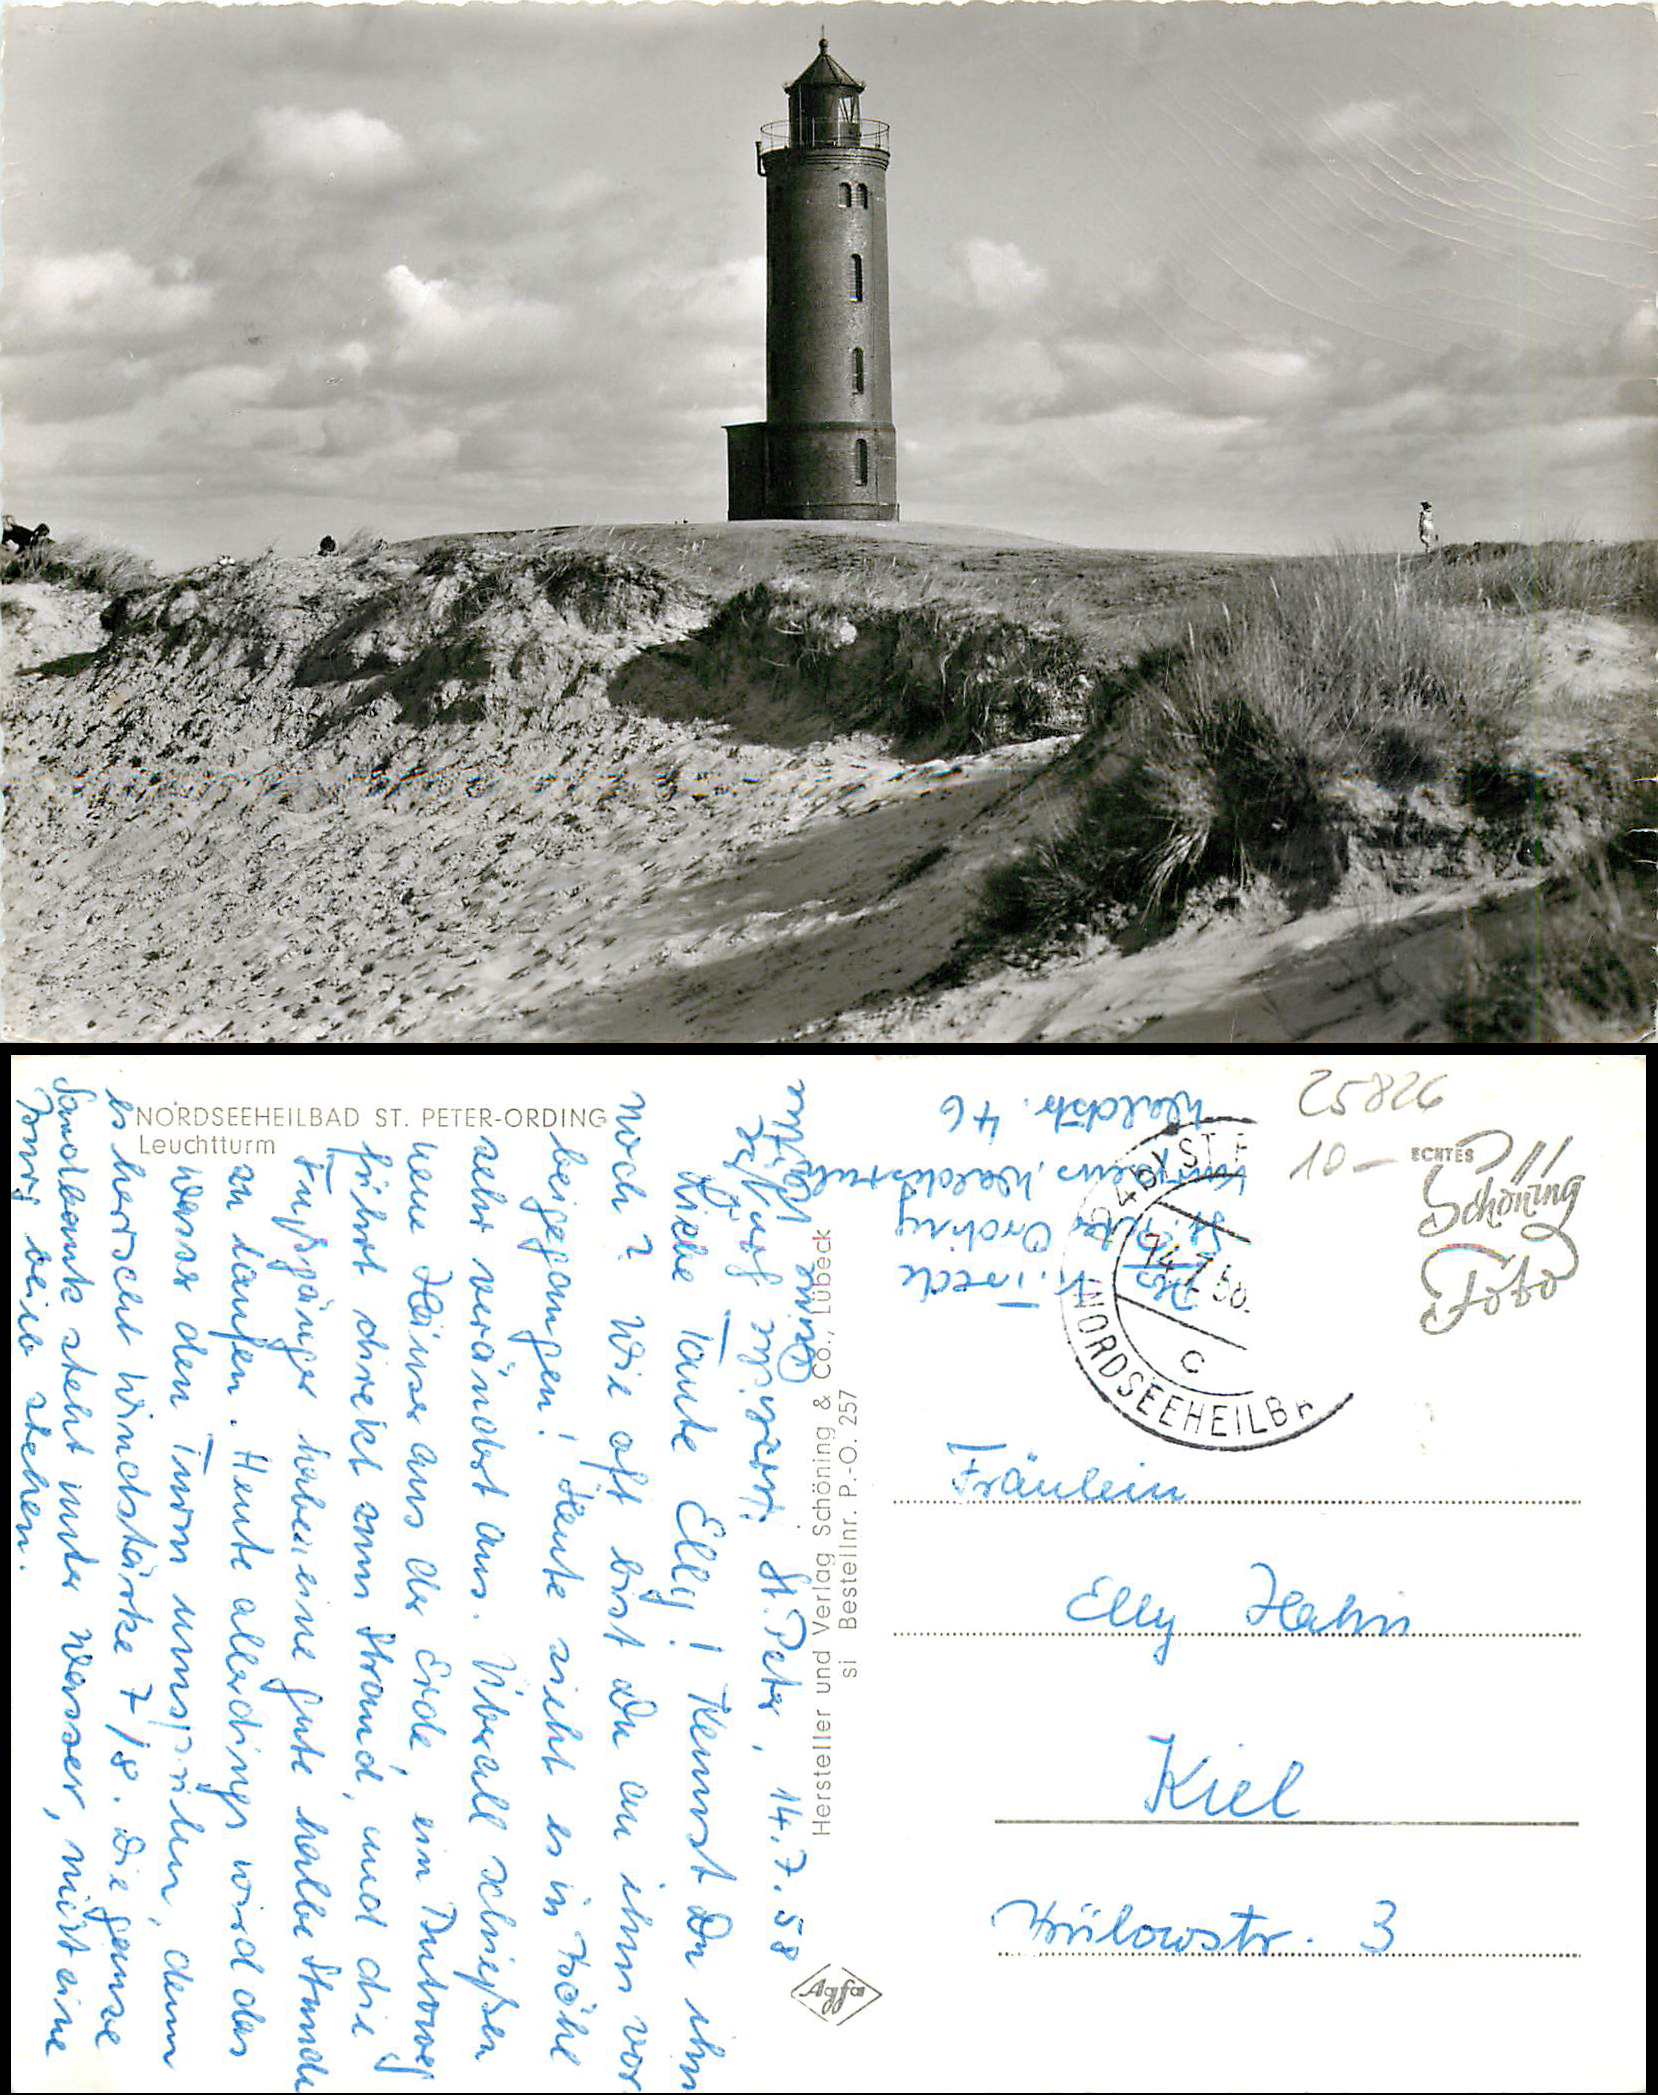 NORDSEEHEILBAD ST. PETER-ORDING
Leuchtturm
St. Peter, 14.7.58
Liebe Tante Elly! Kennst Du ihn
noch? Wie oft bist Du an ihm vor-
beigegangen! Heute sieht es in Böhl
sehr verändert aus. Überall schießen
neue Häuser aus der Erde, ein Autoweg
führt direkt zum Strand, und die
Fußgänger haben eine gute halbe Stunde
zu laufen. Heute allerdings wird das
Wasser den Turm umspülen, denn
es herrscht Windstärke 7/8. Die ganze
Sandbank steht unter Wasser, nicht eine
wird stehen.
Hersteller und Verlag Schöning & Co., Lübeck
si Bestellnr. P.-O. 257
Agfa
St. Peter Ording
Waldstr. 46
25826
10-
ECHTES
Schöning
Foto
ST. P
14.7.58.
c
NORDSEEHEILB
Fräulein
Elly Hahn
Kiel
Bülowstr. 3